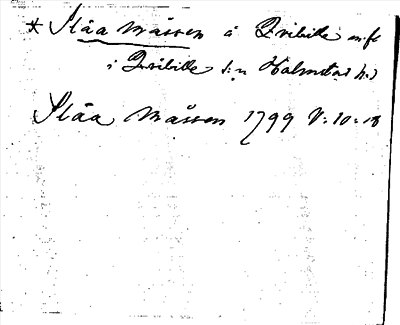 * Slåa Måssen å Qvibille m. fl.
i Qvibille s:n Halmstad h:d
Slåa Måssen 1799 V:10:18